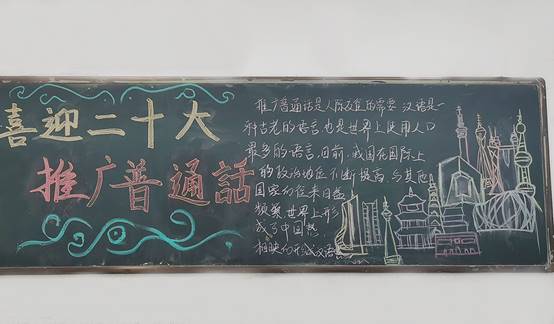 喜迎二十大
推广普通話
推广普通话是人际交往的需要 汉语是一
种古老的语言,也是世界上使用人口
最多的语言,目前,我国在国际上
的政治地位不断提高 与其他
国家的往来日益
频繁,世界上形
成了中国热
相映的形成汉语